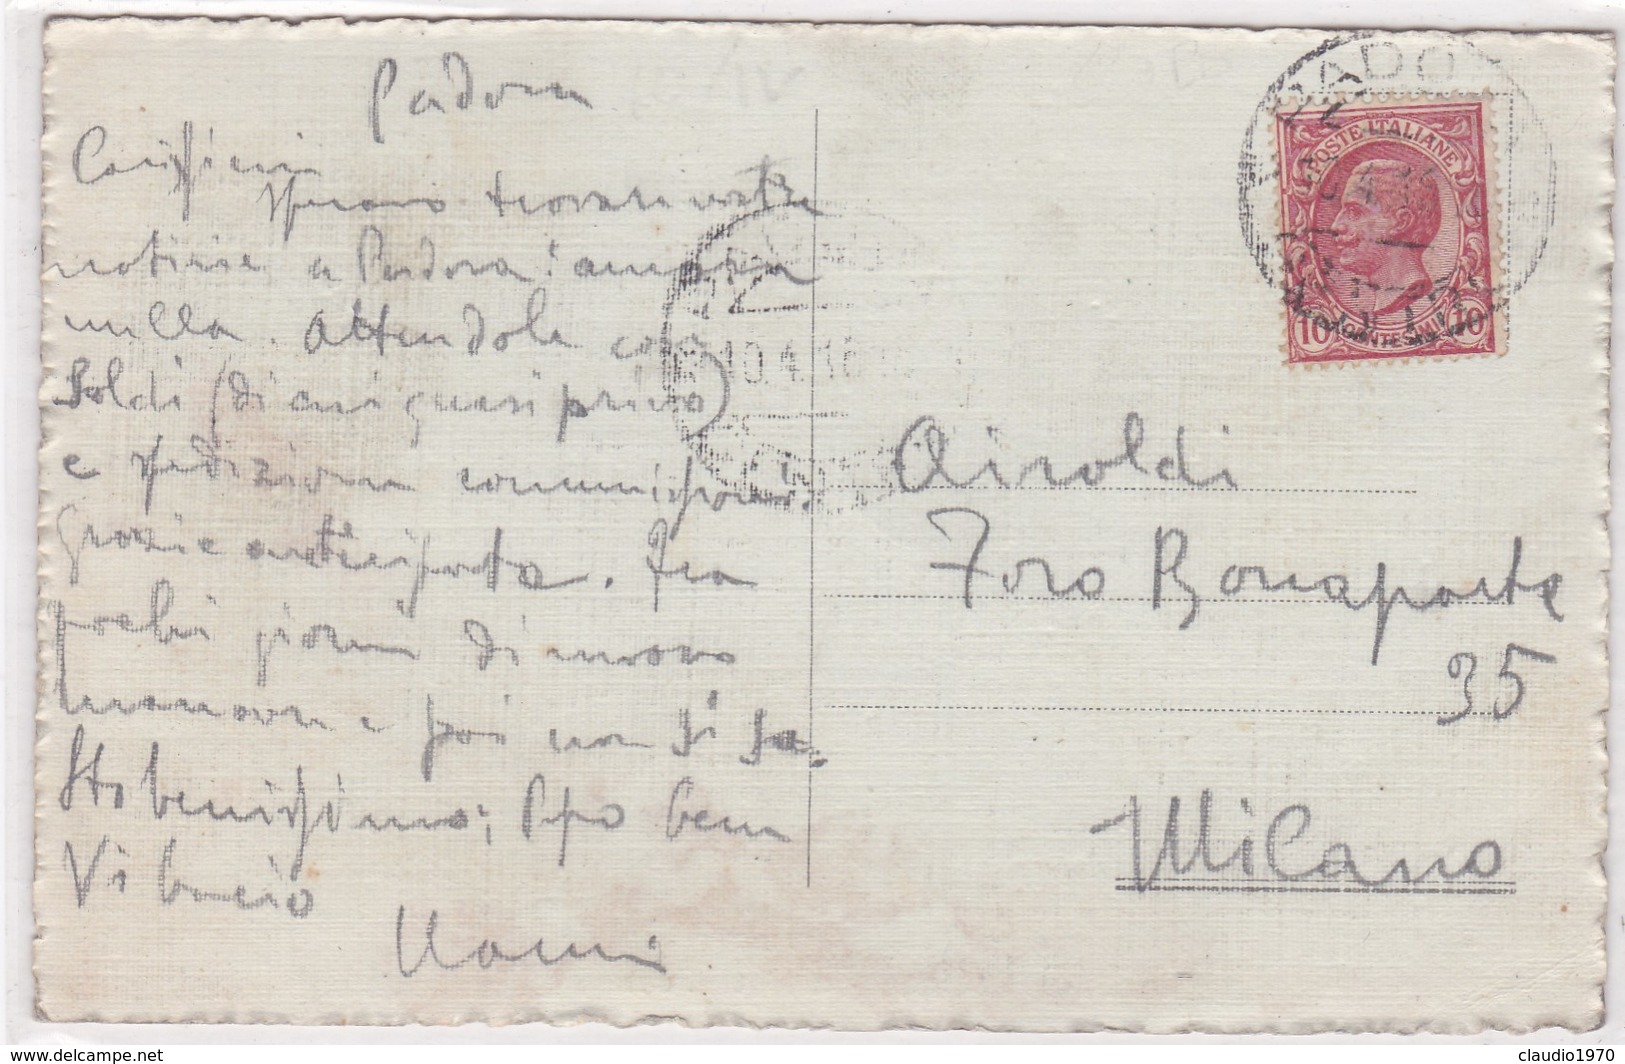 Padova
Carissimi
Speravo trovare vostre
notizie a Padova: ancora
nulla. Attendole così
soldi (di cui quasi privo)
e spedizione commissioni.
Grazie anticipate. Fra
pochi giorni di nuovo
manovre e poi non si sa.
Sto benissimo; Pipo bene
Vi bacio
Nanni
PADO
POSTE ITALIANE
10 10
10.4.16
Airoldi
Foro Bonaparte
35
Milano
www.delcampe.net
claudio1970